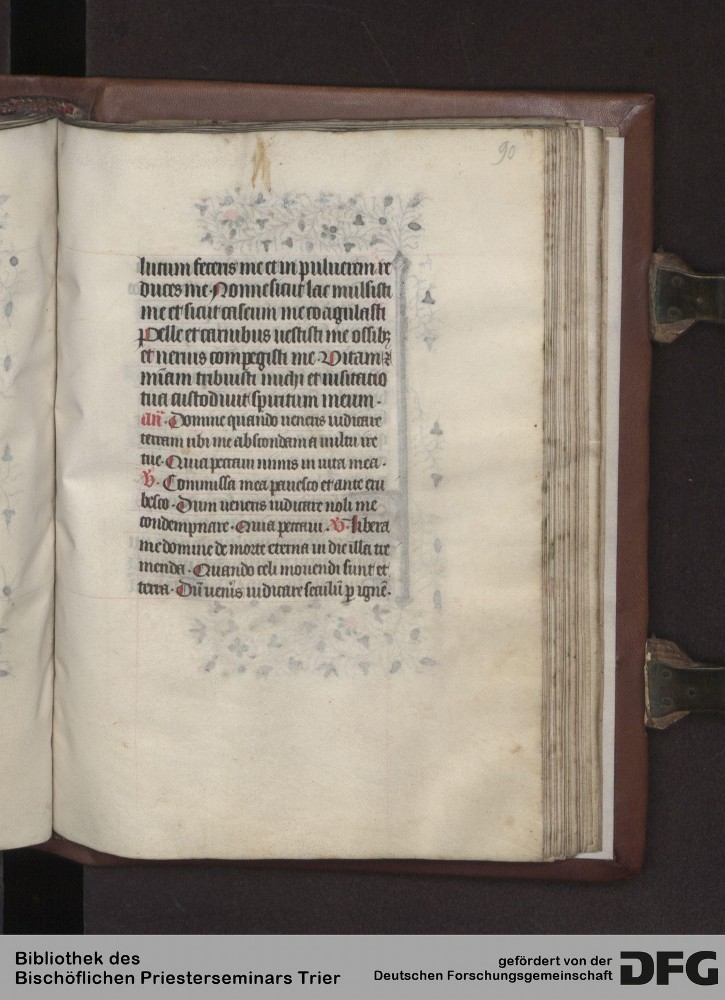 90
lutum feceris me et in puluerem re
duces me · Nonne sicut lac mulsisti
me et sicut caseum me coagulasti
Pelle et carnibus uestisti me ossibꝫ
et neruis compegisti me · Vitam ⁊
mīam tribuisti michi et uisitatio
tua custodiuit spiritum meum ·
an̄ · Domine quando ueneris iudicare
terram ubi me abscondam a uultu ire
tue · Quia peccaui nimis in uita mea ·
V̄ · Commissa mea pauesco et ante eru
besco · Dum ueneris iudicare noli me
condempnare · Quia peccaui · V̄ · Libera
me domine de morte eterna in die illa tre
menda · Quando celi mouendi sunt et
terra · Dū uenīs iudicare seculū ꝑ ignē ·
Bibliothek des
Bischöflichen Priesterseminars Trier
gefördert von der
Deutschen Forschungsgemeinschaft
DFG